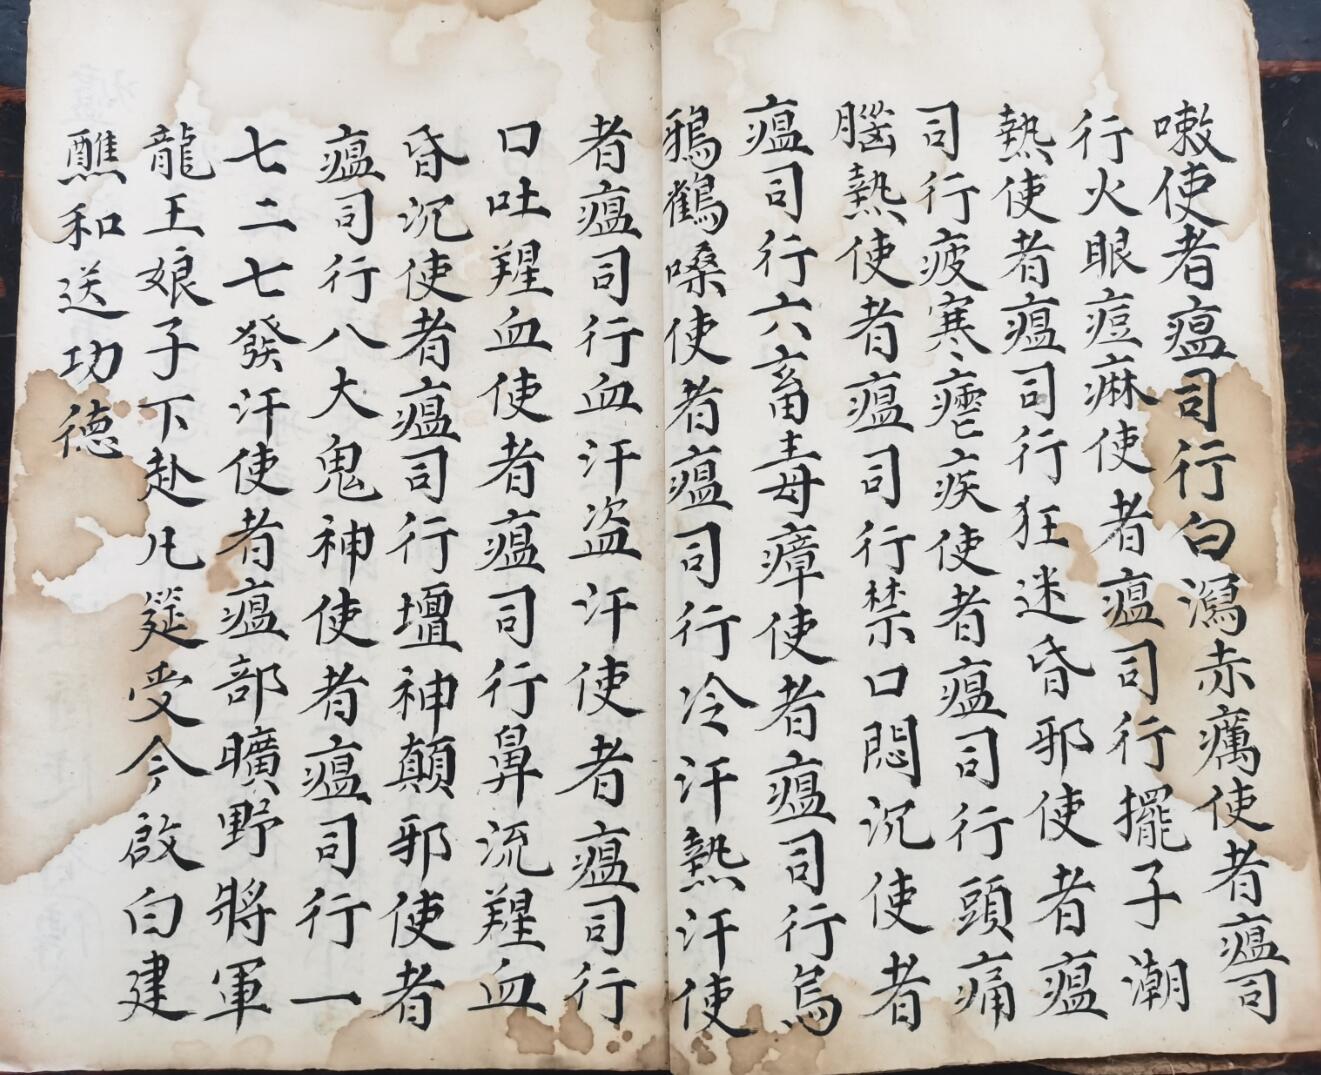 嗽使者瘟司行白瀉赤癘使者瘟司
行火眼痘痲使者瘟司行擺子潮
熱使者瘟司行狂迷昏邪使者瘟
司行疲寒瘧疾使者瘟司行頭痛
腦熱使者瘟司行禁口悶沉使者
瘟司行六畜毒瘴使者瘟司行烏
鴉鶴嗓使者瘟司行冷汗熱汗使
者瘟司行血汗盗汗使者瘟司行
口吐血使者瘟司行鼻流血
昏沉使者瘟司行壇神顛邪使者
瘟司行八大鬼神使者瘟司行一
七二七發汗使者瘟部曠野將軍
龍王娘子下赴凡筵受今啟白建
醮和送功德